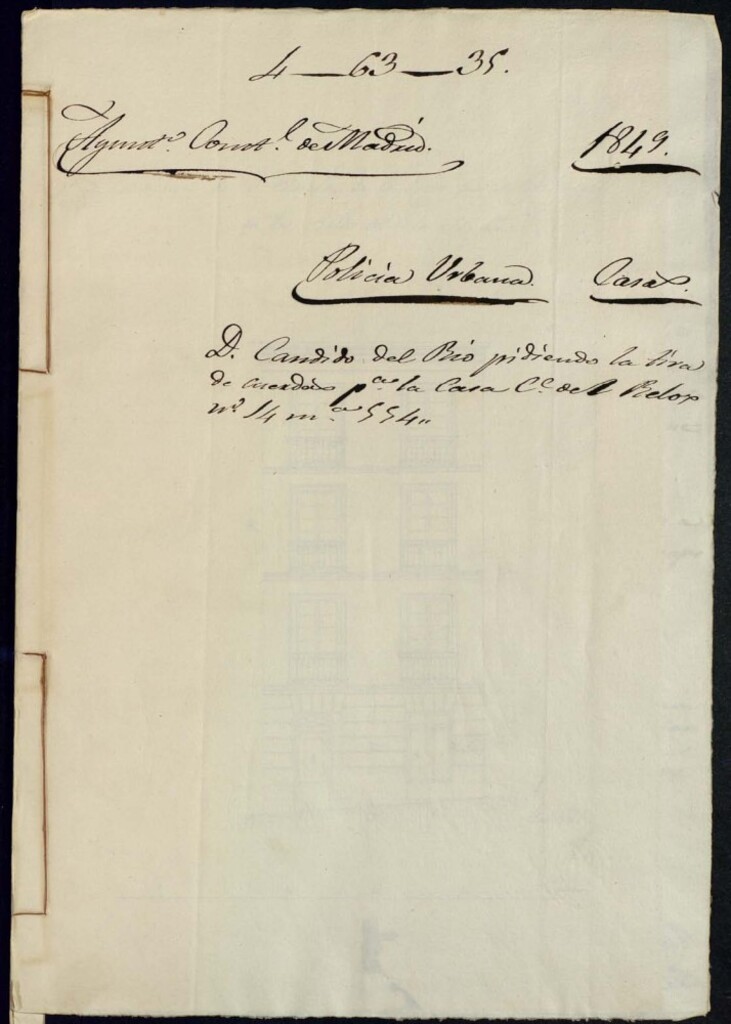 4—63—35.
Ayunt.º Const.l de Madrid.
1849.
Policia Urbana.
Casas.
D. Candido del Rio pidiendo la tira
de cuerdas p.a la Casa C.e del Relox
n.º 14 m.a 554„